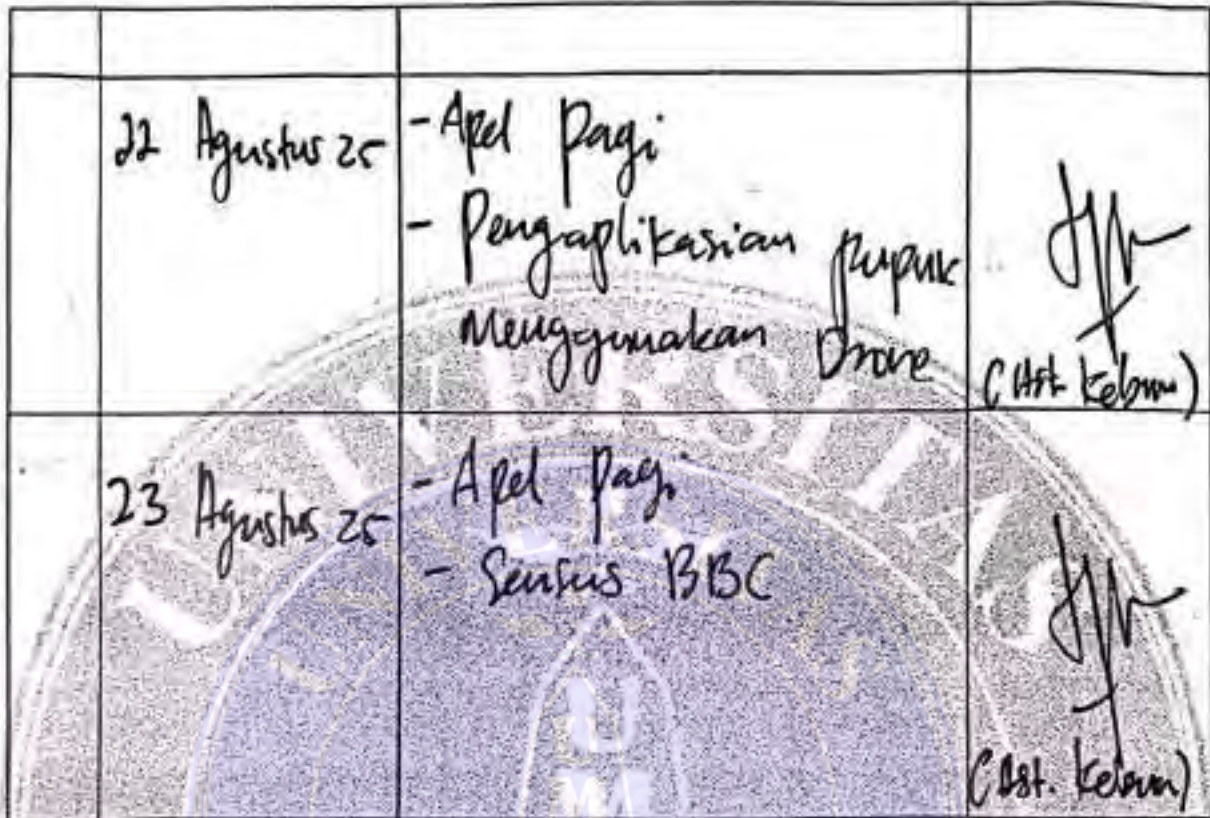 22 Agustus 25
- Apel pagi
- Pengaplikasian pupuk
Menggunakan Drone
(Ast. Kebun)
23 Agustus 25
- Apel pagi
- Sensus BBC
(Ast. Kebun)
UNIVERSITAS
UNIVERSITAS
U
M